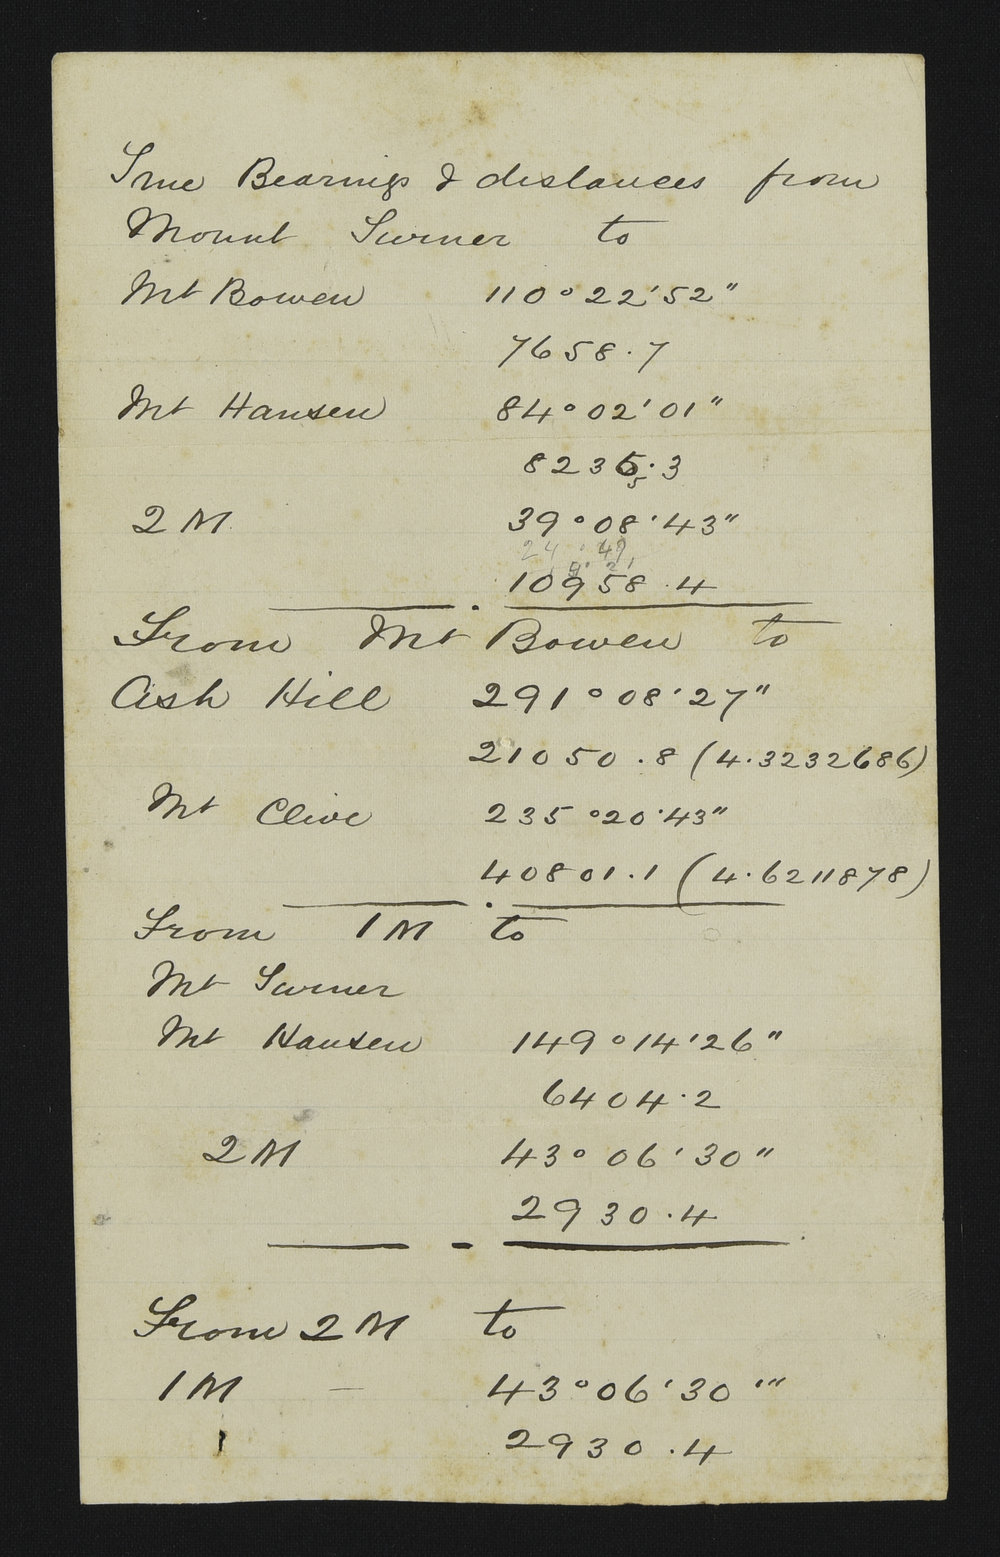 True Bearings & distances from
Mount Turner to
Mt Bowen 110°22'52"
7658.7
Mt Hansen 84°02'01"
8235.3
5
2M 39°08'43"
24 ° 49
10958.4
From Mt Bowen to
Ash Hill 291°08'27"
21050.8 (4.3232686)
Mt Clive 235°20'43"
40801.1 (4.6211878)
From 1M to
Mt Turner
Mt Hansen 149°14'26"
6404.2
2M 43°06'30"
2930.4
From 2M to
1M — 43°06'30'"
2930.4